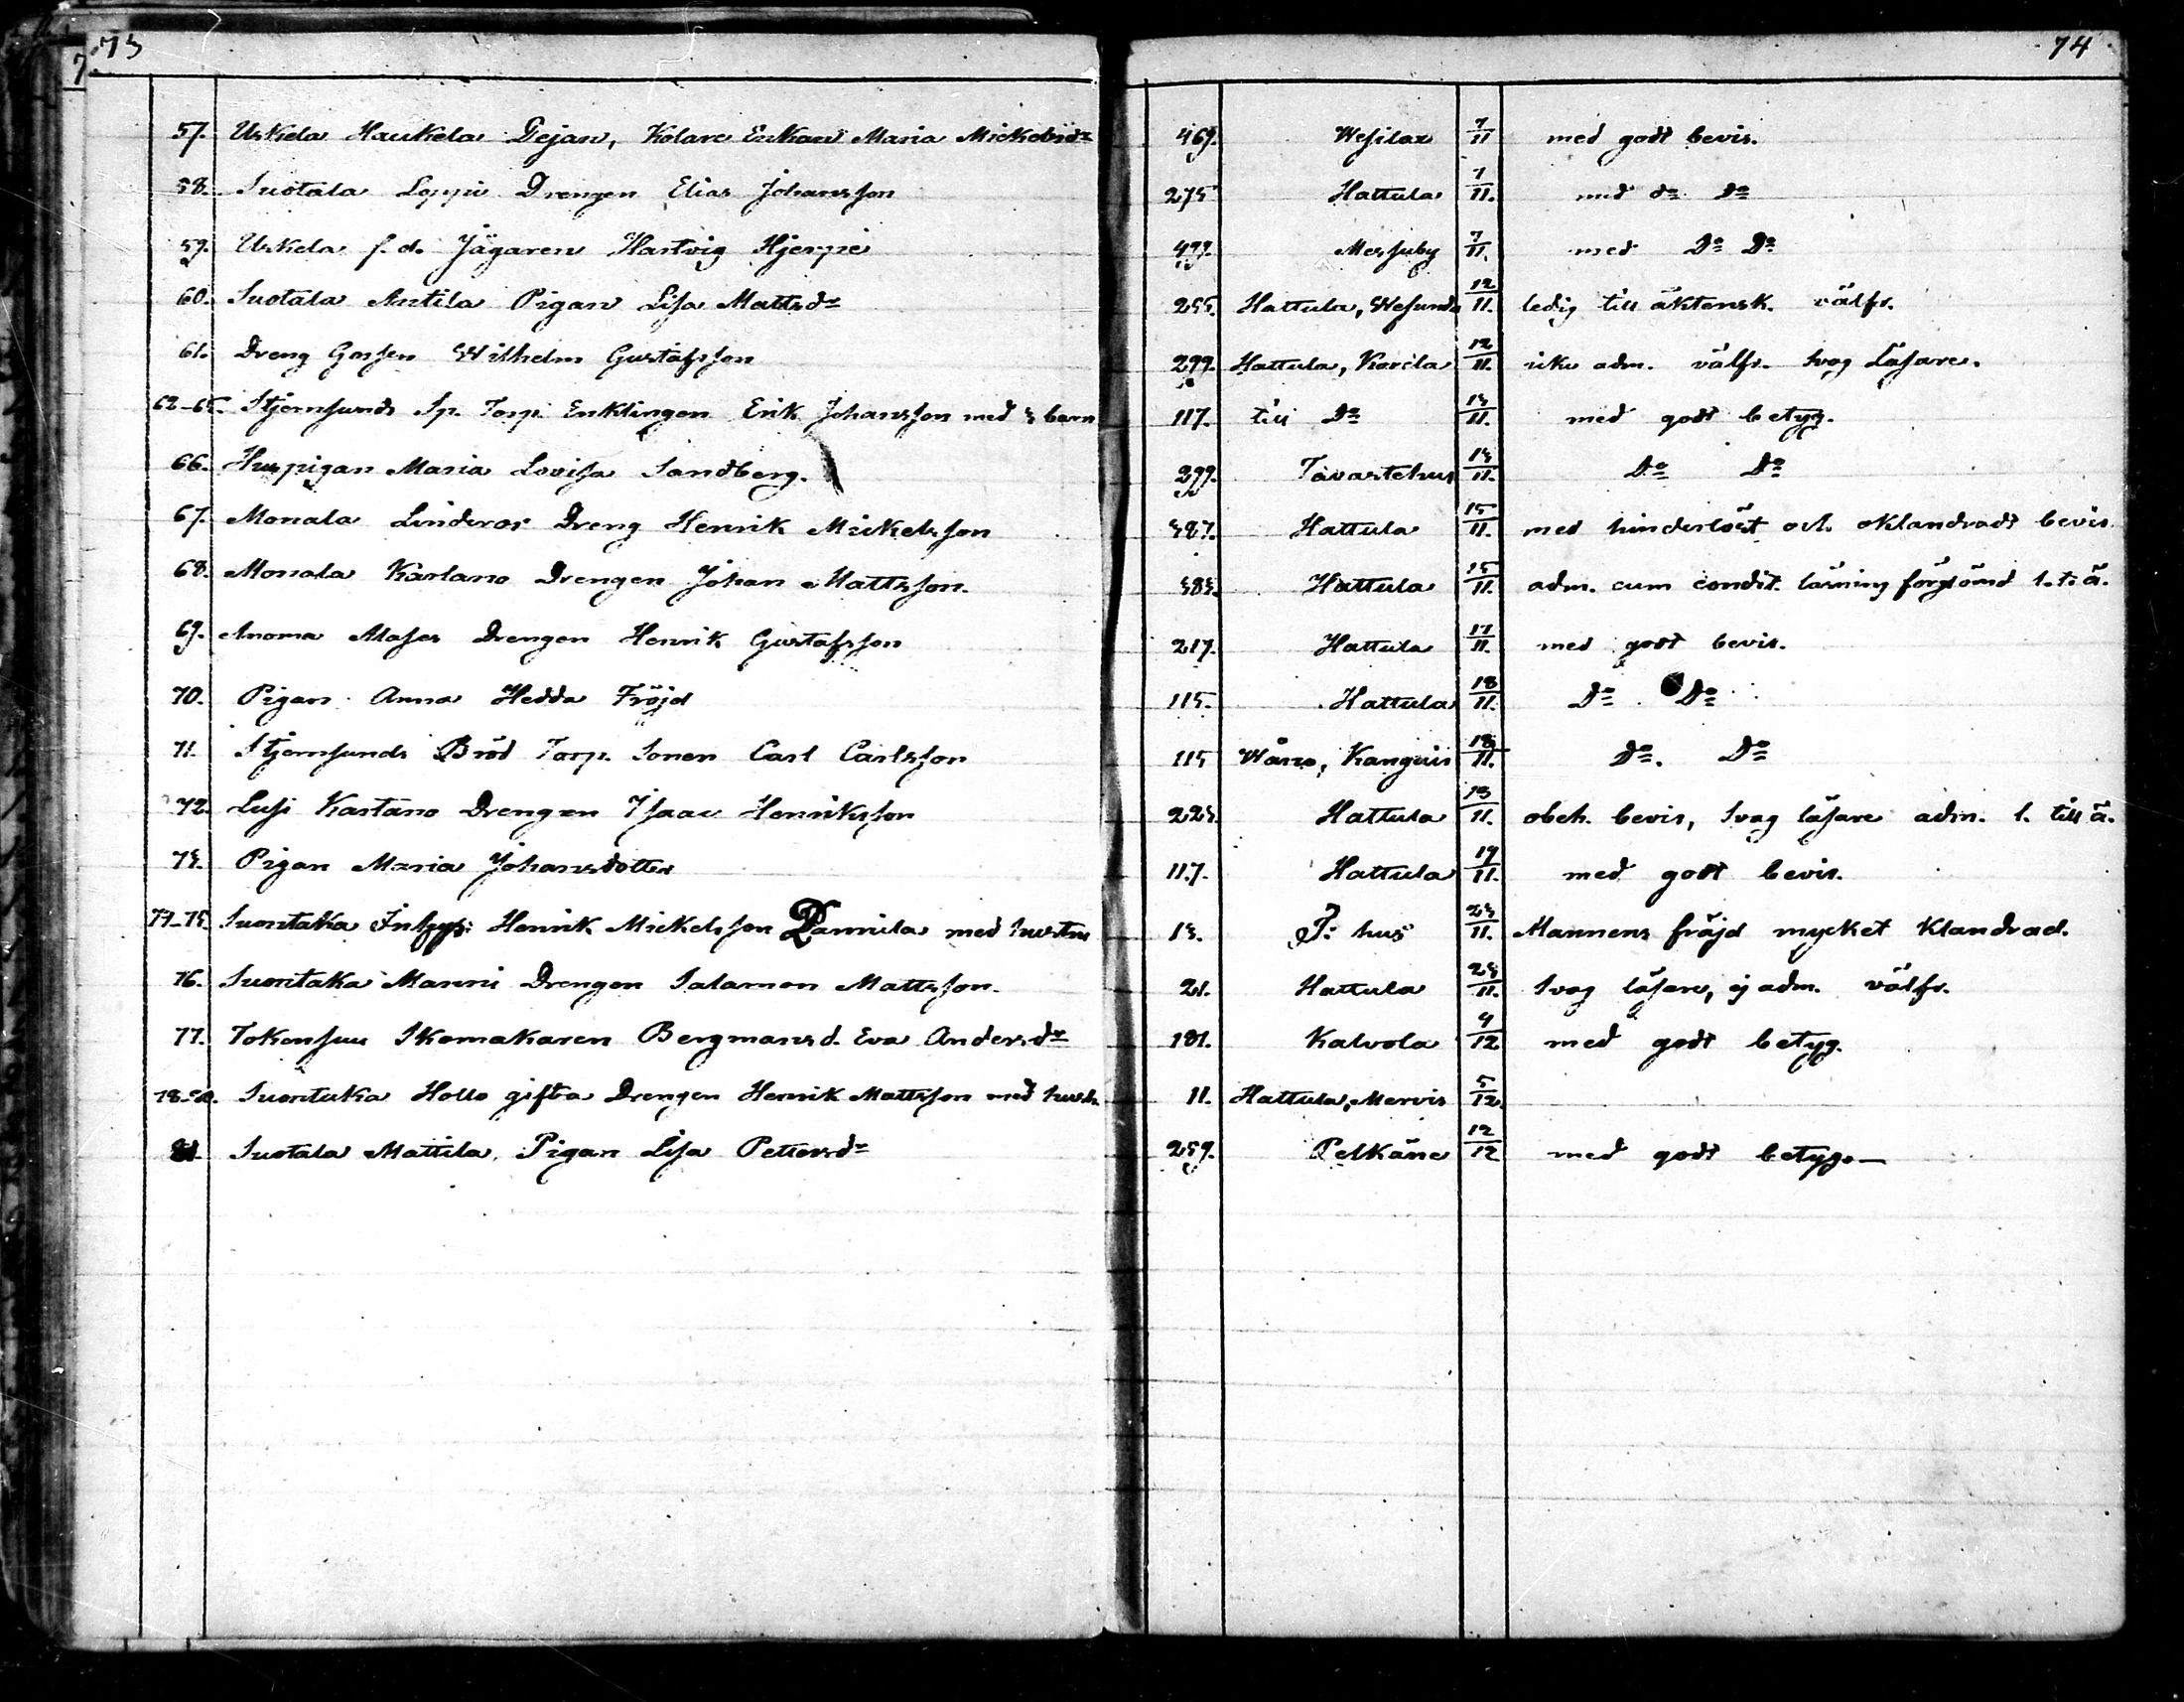 73
74
57. Uskela Haukela Dejan, Kolare Enkan Maria Mickelsdr 469. Wesilax 7/11 med godt bevis.
58. Suotala Loppi Drengen Elias Johansson 275 Hattula 7/11. med do Do
59. Uskela f. d. Jägaren Hartvig Hjerpe 499. Messuby 7/11. med Do Do
60. Suotala Antila Pigan Lisa Mattsdr 255. Hattula, Wesunda 12/11. ledig till äktensk. välfr.
61. Dreng Gossen Wilhelm Gustafsson 299. Hattula, Karela 12/11. icke adm. välfr. svag läsare.
62-65. Stjernsunds Sp. Torp. Enklingen Erik Johansson med 3 barn 117. till Do 13/11. med godt betyg.
66. Huspigan Maria Lovisa Sandberg. 299. Tavastehus 13/11. Do Do
67. Monala Linderos Dreng Henrik Mickelsson 387. Hattula 15/11. med hinderlöst och oklandradt bevis.
68. Monala Kartano Drengen Johan Mattsson. 383. Hattula 15/11. adm. cum condit. läsning förglömd l. t. ä.
69. Anoma Alases Drengen Henrik Gustafsson 217. Hattula 17/11. med godt bevis.
70. Pigan Anna Hedda Fröjd 115. Hattula 18/11. Do Do
71. Stjernsunds Bröd Torp. Sonen Carl Carlsson 115 Wåno, Kanguis 18/11. Do. Do
72. Lusi Kartano Drengen Isaac Henriksson 223. Hattula 19/11. obeh. bevis, svag läsare adm. l. till ä.
73. Pigan Maria Johansdotter 117. Hattula 19/11. med godt bevis.
74-75. Suontaka Inhys: Henrik Mickelsson Pannila med hustru 13. T: hus 23/11. Mannens fräjd mycket klandrad.
76. Suontaka Manni Drengen Salamon Mattsson. 21. Hattula 23/11. svag läsare, ej adm. välfr.
77. Tokensuu Skomakaren Bergmans d. Eva Andersdr 181. Kalvola 4/12 med godt betyg.
78-80. Suontaka Hollo gifta Drengen Henrik Mattsson med hustr. 11. Hattula, Mervis 5/12.
81. Suotala Mattila, Pigan Lisa Pettersdr 259. Pelkäne 12/12 med godt betyg.—